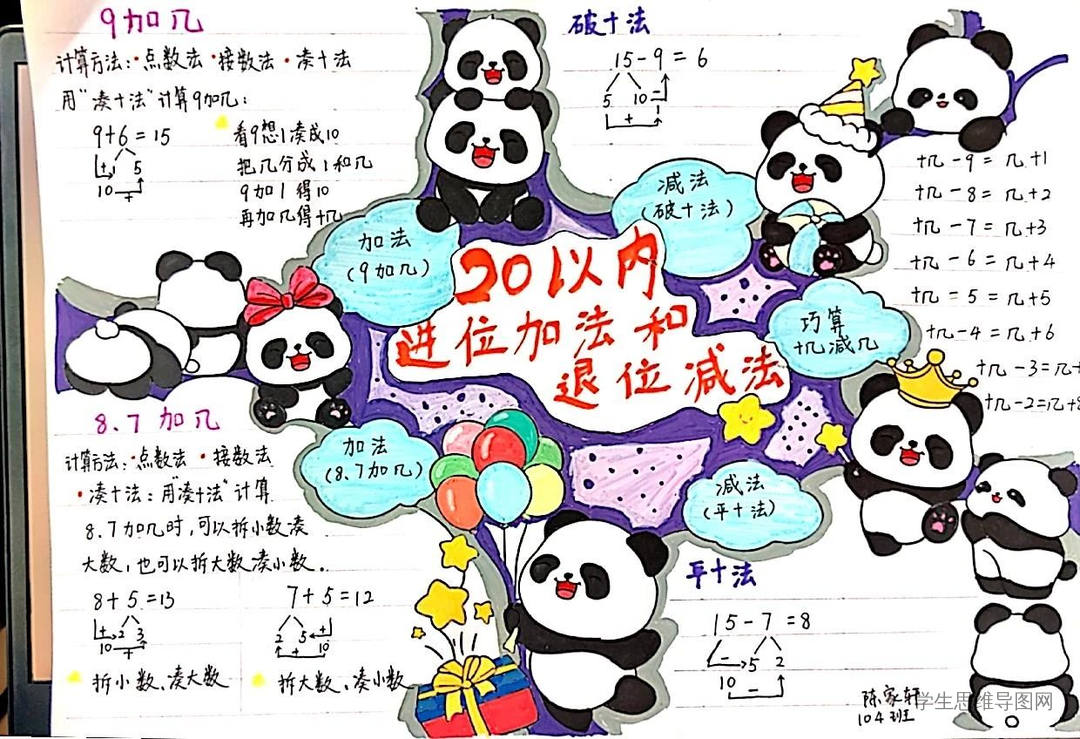 9加几
计算方法:·点数法·接数法·凑十法
用"凑十法"计算9加几:
9+6=15
1 5
10
看9想1凑成10
把几分成1和几
9加1得10
再加几得十几
破十法
15-9=6
5 10
十几-9=几+1
十几-8=几+2
十几-7=几+3
十几-6=几+4
十几=5=几+5
十几-4=几+6
十几-3=几+
十几-2=几+8
加法
(9加几)
减法
(破十法)
20以内
进位加法和
退位减法
巧算
十几减几
8.7加几
计算方法:·点数法·接数法
·凑十法:用"凑十法"计算
8.7加几时,可以拆小数凑
大数,也可以拆大数凑小数。
8+5=13
2 3
10
拆小数、凑大数
7+5=12
2 5
10
拆大数、凑小数
加法
(8.7加几)
减法
(平十法)
平十法
15-7=8
5 2
10
陈家轩
104班
学生思维导图网